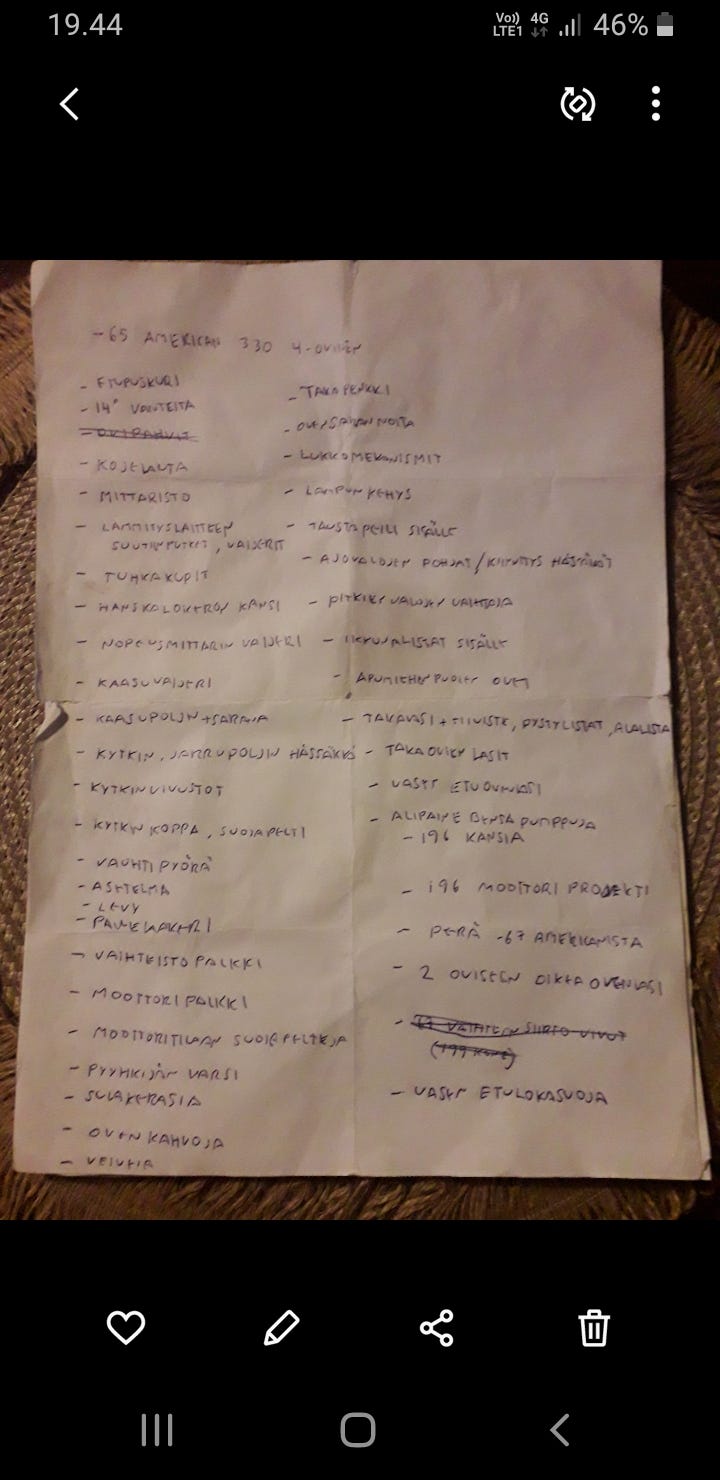 19.44
Vo)) 4G
LTE1 46%
-65 AMERICAN 330 4-OVINEN
- ETUPUSKURI
- 14" VANTEITA
- OVIPAHVIT
- KOJELAUTA
- MITTARISTO
- LÄMMITYSLAITTEEN
SUUTINPUTKET, VAIJERIT
- TUHKAKUPIT
- HANSKALOKERON KANSI
- NOPEUSMITTARIN VAIJERI
- KAASUVAIJERI
- KAASUPOLJIN + SARANA
- KYTKIN, JARRUPOLJIN HÄSSÄKKÄ
- KYTKINVIVUSTOT
- KYTKIN KOPPA, SUOJAPELTI
- VAUHTIPYÖRÄ
- ASETELMA
- LEVY
- PAINELAKERI
- VAIHTEISTO PALKKI
- MOOTTORI PALKKI
- MOOTTORITILAAN SUOJAPELTEJÄ
- PYYHKIJÄN VARSI
- SULAKERASIA
- OVEN KAHVOJA
- VEIVEJÄ
- TAKAPENKKI
- OVENSARANNOITA
- LUKKOMEKANISMIT
- LAMPUN KEHYS
- TAUSTAPEILI SISÄLLE
- AJOVALOJEN POHJAT/KIINNITYS HÄSSÄKÄT
- PITKIEN VALOJEN VAIHTAJA
- IKKUNALISTAT SISÄLLE
- APUMIEHEN PUOLEN OVET
- TAKALASI + TIIVISTE, PYSTYLISTAT, ALALISTA
- TAKAOVIEN LASIT
- VASEN ETUOVENLASI
- ALIPAINE BENSA PUMPPUJA
- 196 KANSIA
- 196 MOOTTORI PROJEKTI
- PERÄ -67 AMERIKANISTA
- 2 OVISEEN OIKEA OVENLASI
- VAIHTEEN SIIRTO VIVUT
- VASEN ETULOKASUOJA